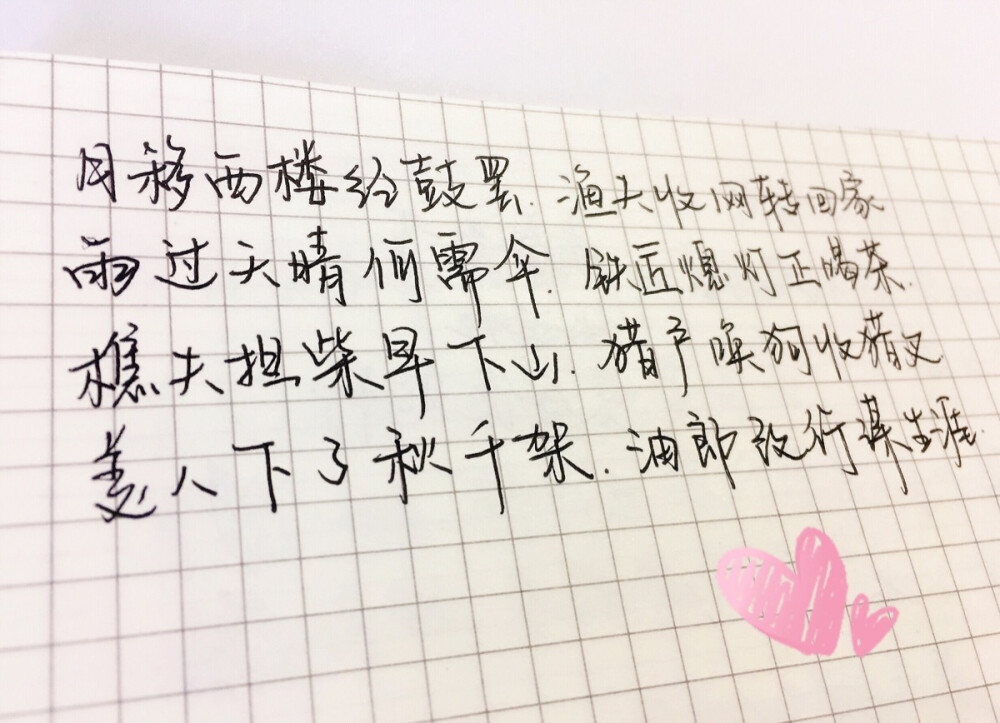 月移西楼给鼓罢.渔夫收网转回家
雨过天晴何需伞.铁匠熄灯正喝茶.
樵夫担柴早下山.猎户唤狗收猎叉
美人下了秋千架.油郎改行谋生涯.